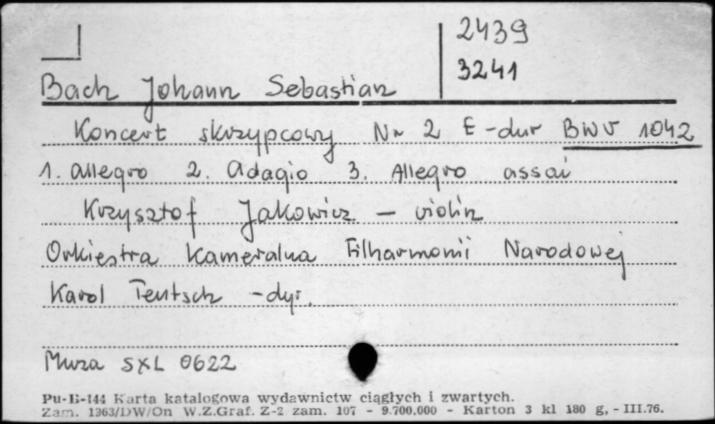 2439
3241
Bach Johann Sebastian
Koncert skrzypcowy Nr 2 E-dur BWV 1042
1. Allegro 2. Adagio 3. Allegro assai
Krzysztof Jakowicz - violin
Orkiestra Kameralna Filharmonii Narodowej
Karol Teutsch - dyr.
Muza SXL 0622
Pu-B-144 Karta katalogowa wydawnictw ciągłych i zwartych.
Zam. 1363/DW/On W.Z.Graf. Z-2 zam. 107 - 9.700.000 - Karton 3 kl 180 g. - III.76.